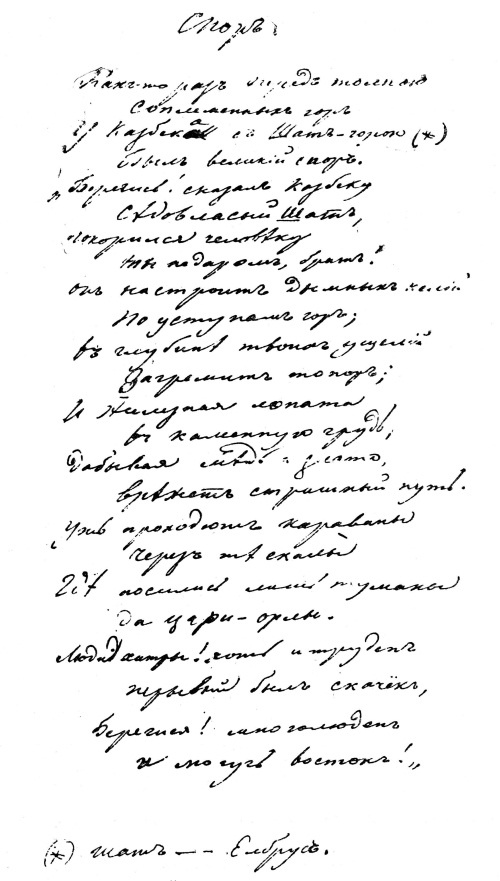 Споръ.
Какъ-то разъ передъ толпою
Соплеменныхъ горъ
У Казбека съ Шатъ-горою (*)
былъ великій споръ.
„Берегись! сказалъ Казбеку
Сѣдовласый Шатъ,
покорился человѣку
ты недаромъ, братъ!
онъ настроитъ дымныхъ келій
По уступамъ горъ;
въ глубинѣ твоихъ ущелій
Загремитъ топоръ;
И Желѣзная лопата
въ каменную грудь,
Добывая мѣдь и злато,
врѣжетъ страшный путь.
Ужъ проходютъ караваны
Черезъ тѣ скалы
Гдѣ носились лишь туманы
да цари-орлы.
Люди хитры! хоть и труденъ
первый былъ скачёкъ,
Берегися! многолюденъ
и могучъ востокъ!„
(*) шатъ — - Елбрусъ.